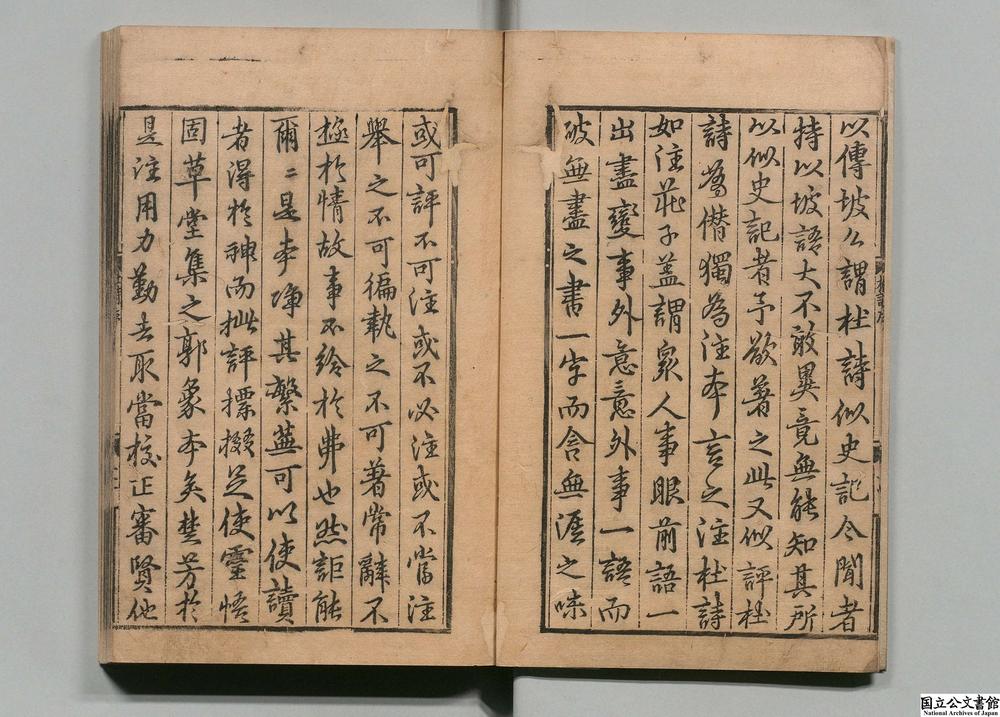 以傳坡公謂杜詩似史記今聞者
特以坡語大不敢異竟無能知其所
以似史記者予欲著之此又似評杜
詩為僭獨為注本言之注杜詩
如注莊子蓋謂眾人事眼前語一
出盡變事外意意外事一語而
破無盡之書一字而含無涯之味
或可評不可注或不必注或不當注
舉之不可徧執之不可著常辭不
極於情故事不給於弗也然詎能
爾〻是本淨其繁蕪可以使讀
者得於神而批評標掇足使靈悟
固草堂集之郭象本矣楚芳於
是注用力勤去取當校正審賢他
国立公文書館
National Archives of Japan